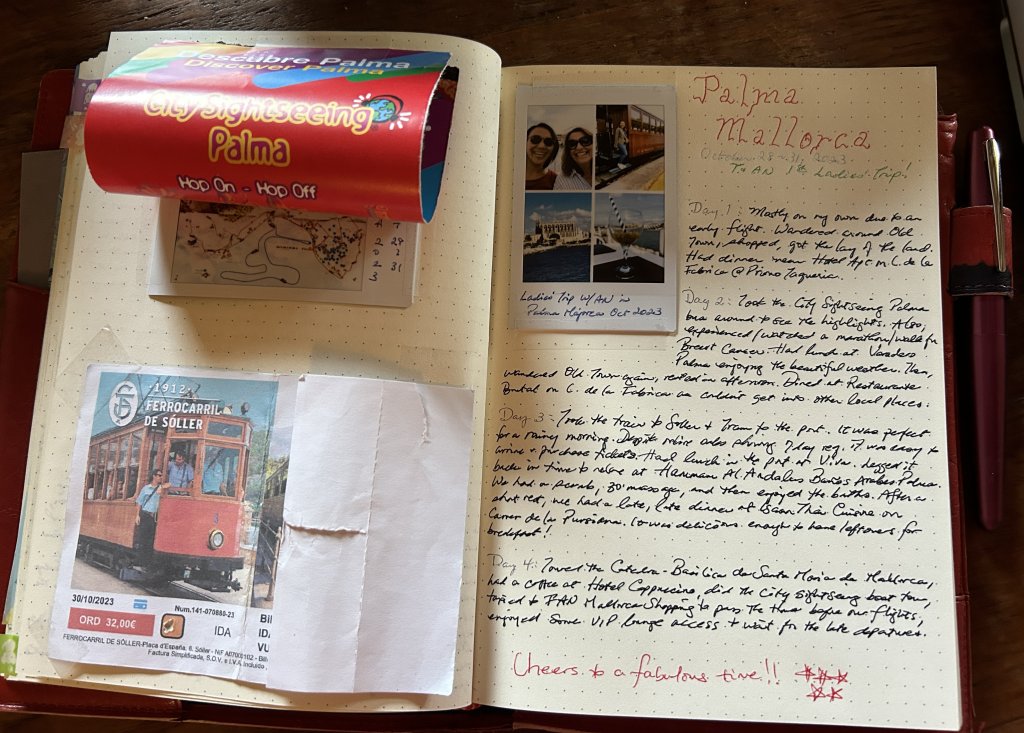 Descubre Palma
Discover Palma
City Sightseeing
Palma
Hop On - Hop Off
28
31
2
0
2
3
· 1912 ·
FERROCARRIL
DE SÓLLER
30/10/2023
Num.141-070880-23
ORD 32,00€
IDA
FERROCARRIL DE SÓLLER-Plaça d'España, 6. Sóller - NIF
Factura Simplificada, S.O.V. e I.V.A. Incluido
Ladies' Trip w/AN in
Palma Majorca Oct 2023
Palma
Mallorca
October 28-31, 2023
1st Ladies' Trip!
Day 1: Mostly on my own due to an
early flight. Wandered around Old
Town, shopped, got the lay of the land.
Had dinner near Hotel Apt. m. C. de la
Fabrica @ Primo Taqueria.
Day 2: Took the City Sightseeing Palma
bus around to see the highlights. Also,
experienced/watched a marathon/walk for
Breast Cancer. Had lunch at
Palma enjoying the beautiful weather. Then,
wandered Old Town again, rested in afternoon. Dined at Restaurante
Brutal on C. de la Fabrica as couldn't get into other local places.
Day 3: Took the train to Soller & Tram to the port. It was perfect
for a rainy morning. Despite online ads advising 7 day reg. it was easy to
arrive & purchase tickets. Had lunch in the port at
back in time to relax at Hammam Al Andalus Baños Arabes Palma.
We had a scrub, 30' massage, and then enjoyed the baths. After a
short rest, we had a late, late dinner at Baan Thai Cuisine on
Carrer de la Purissima. It was delicious enough to have leftovers for
breakfast!
Day 4: Toured the Catedral-Basilica de Santa Maria de Mallorca,
had a coffee at Hotel Cappuccino, did the City Sightseeing boat tour,
FAN Mallorca Shopping to pass the time before our flights,
enjoyed some VIP lounge access & wait for the late departures.
Cheers to a fabulous time!!